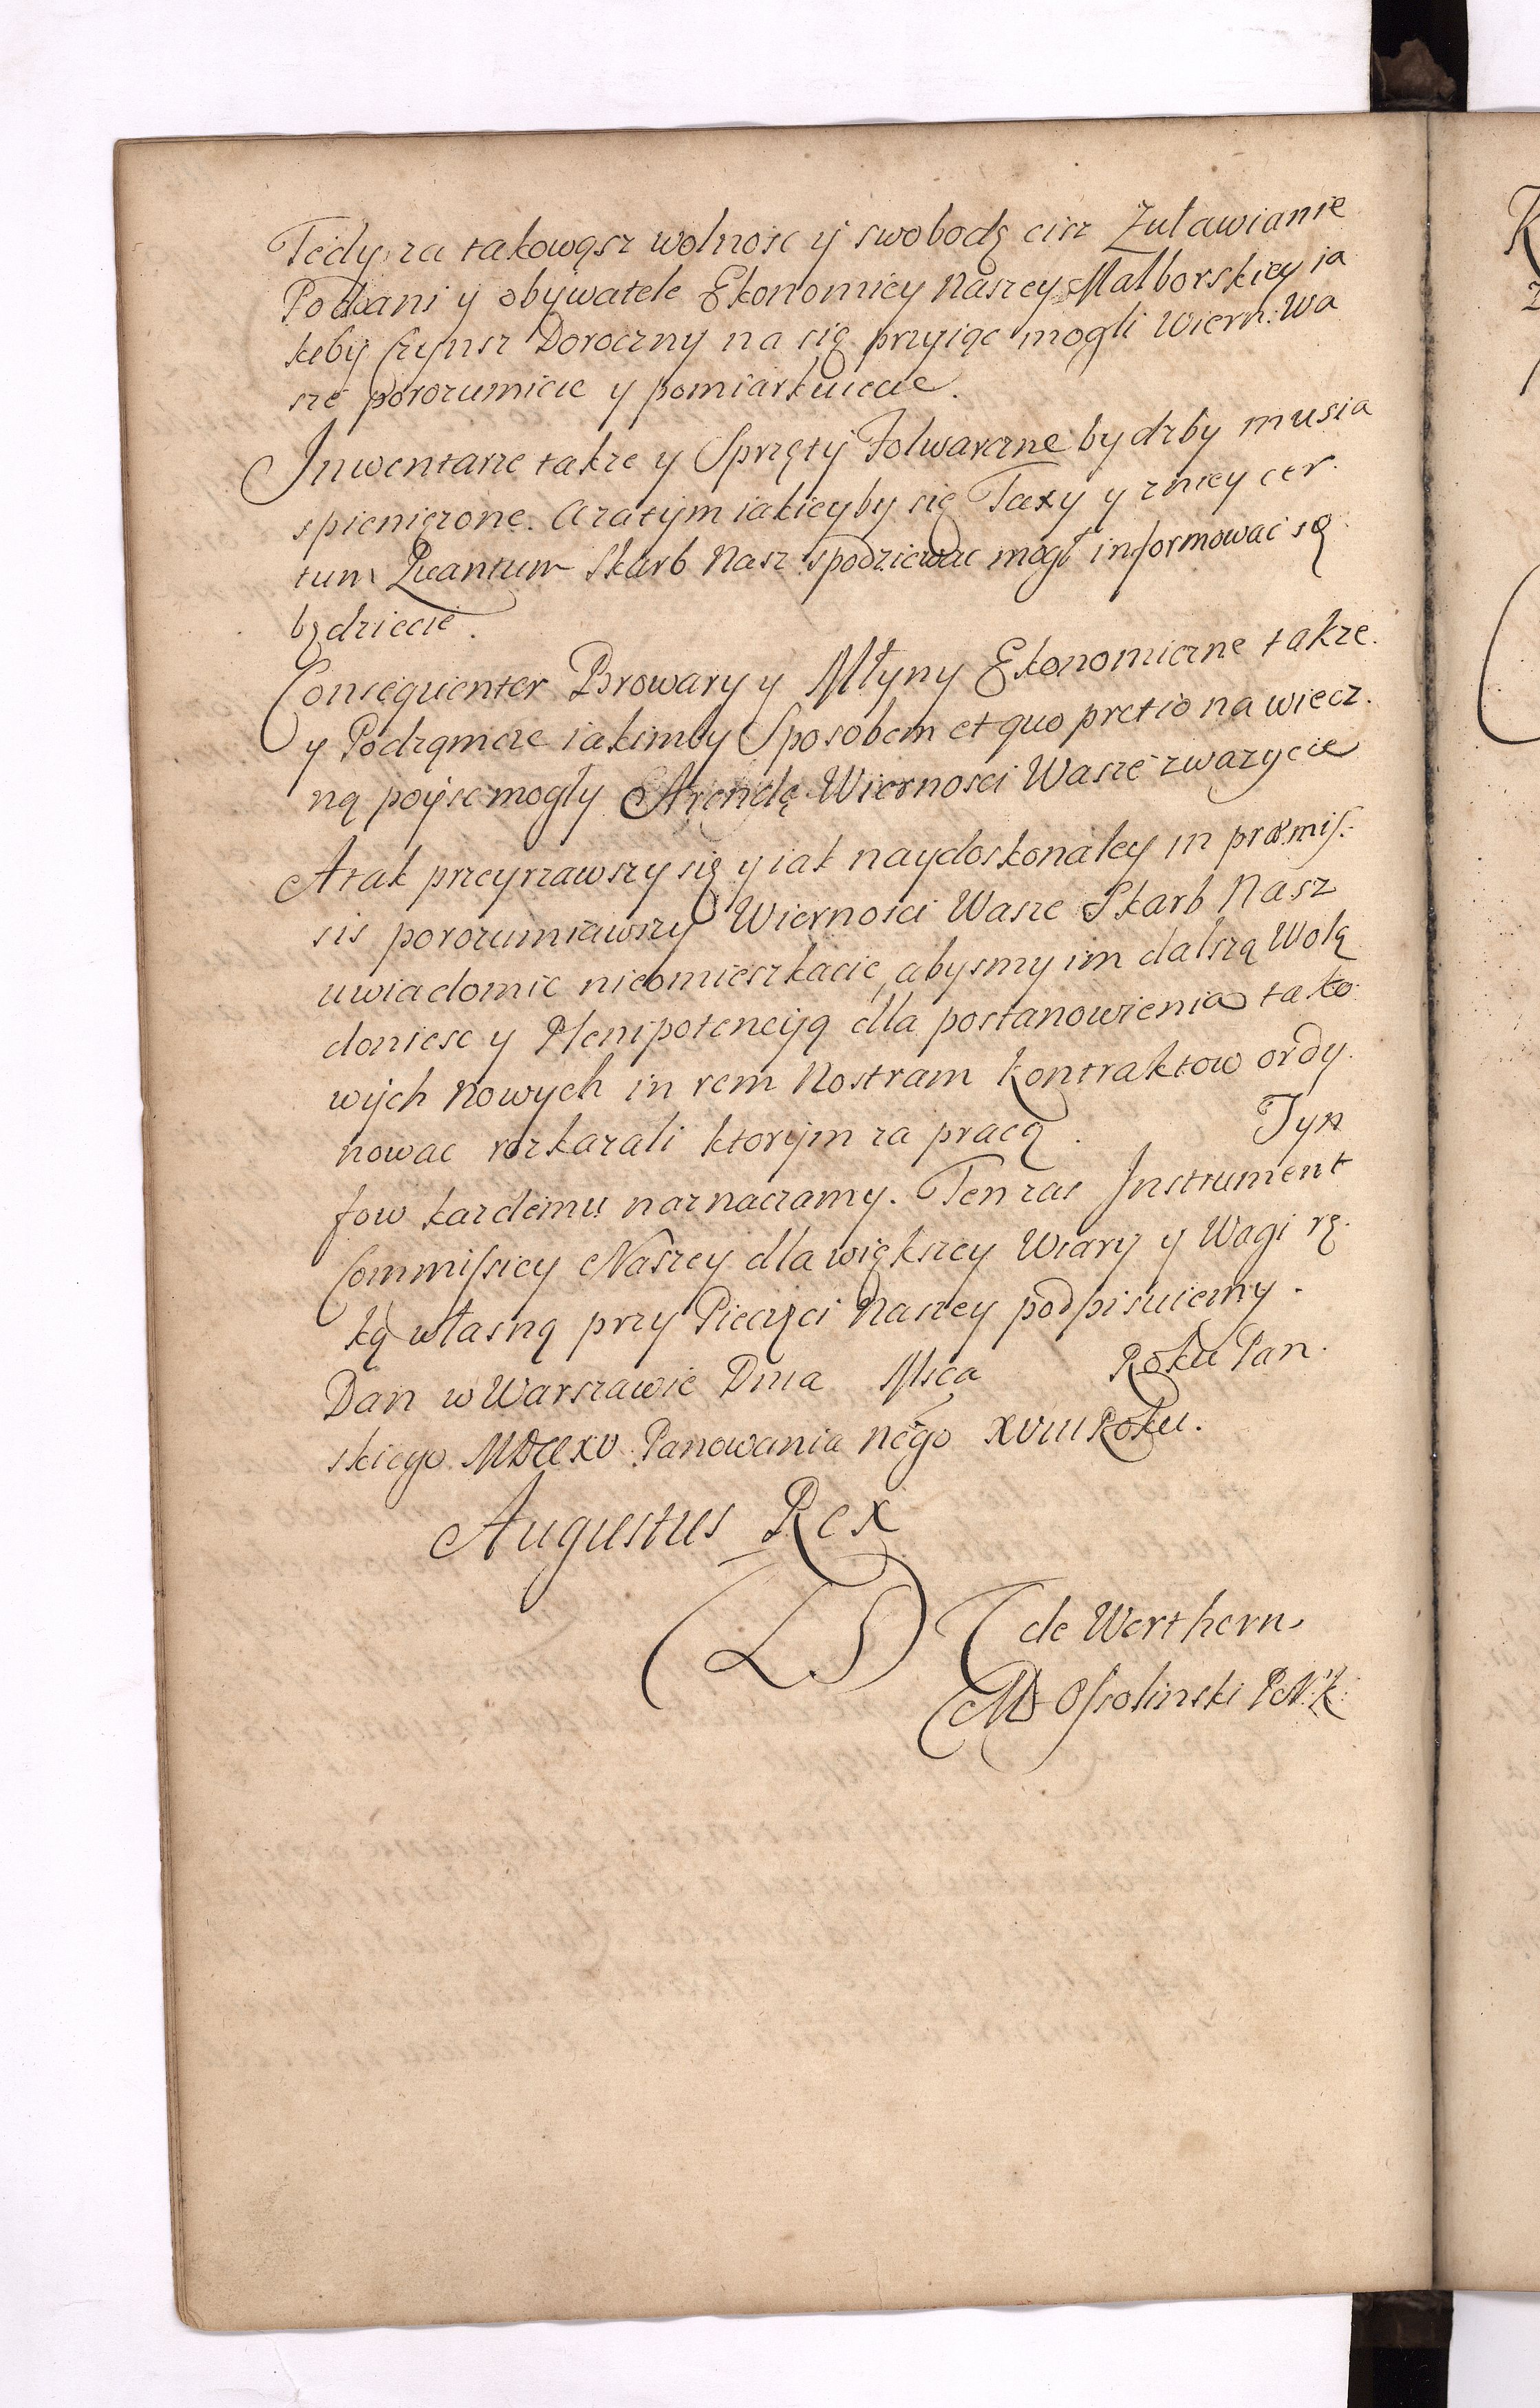 Tedy za takowąsz wolnosc y swobodę cisz Zuławianie
Poddani y obywatele Ekonomiey Naszey Malborskiey ia
keby Czynsz Doroczny na się przyiąc mogli Wiern: Wa
sze porozumicie y pomiarkuiecie.
Inwentarze takze y Sprzęty Folwarczne bydzby musia
spieniężone. A zatym iakieyby się Taxy y z niey cer
tum Quantum Skarb Nasz spodziewac mogł informować sę
będziecie.
Consequenter Browary y Młyny Ekonomiczne takze
y Podzamcze iakimby Sposobem et quo pretio na wiecz
ną poysc mogły Arendę Wiernosci Wasze zwazycie
A tak przeyrzawszy się y iak naydoskonaley in præmis
sis porozumiawszy Wiernosci Wasze Skarb Nasz
uwiadomic nieomieszkacie, abysmy im dalszą Wolą
doniesc y Plenipotencyą dla postanowienia tako
wych Nowych in rem Nostram Kontraktow ordy
nowac rozkazali ktorym za pracą . Tyn
fow kazdemu naznaczamy. Ten zas Instrument
Commissiey Naszey dla większey Wiary y Wagi rę
ką własną przy Pieczęci Naszey podpisuiemy.
Dan w Warszawie Dnia Msca Roku Pan
skiego MDCCXV Panowania nego XVIII Roku.
Augustus Rex
(LS) de Werthern
Ossolinski P.N.K.